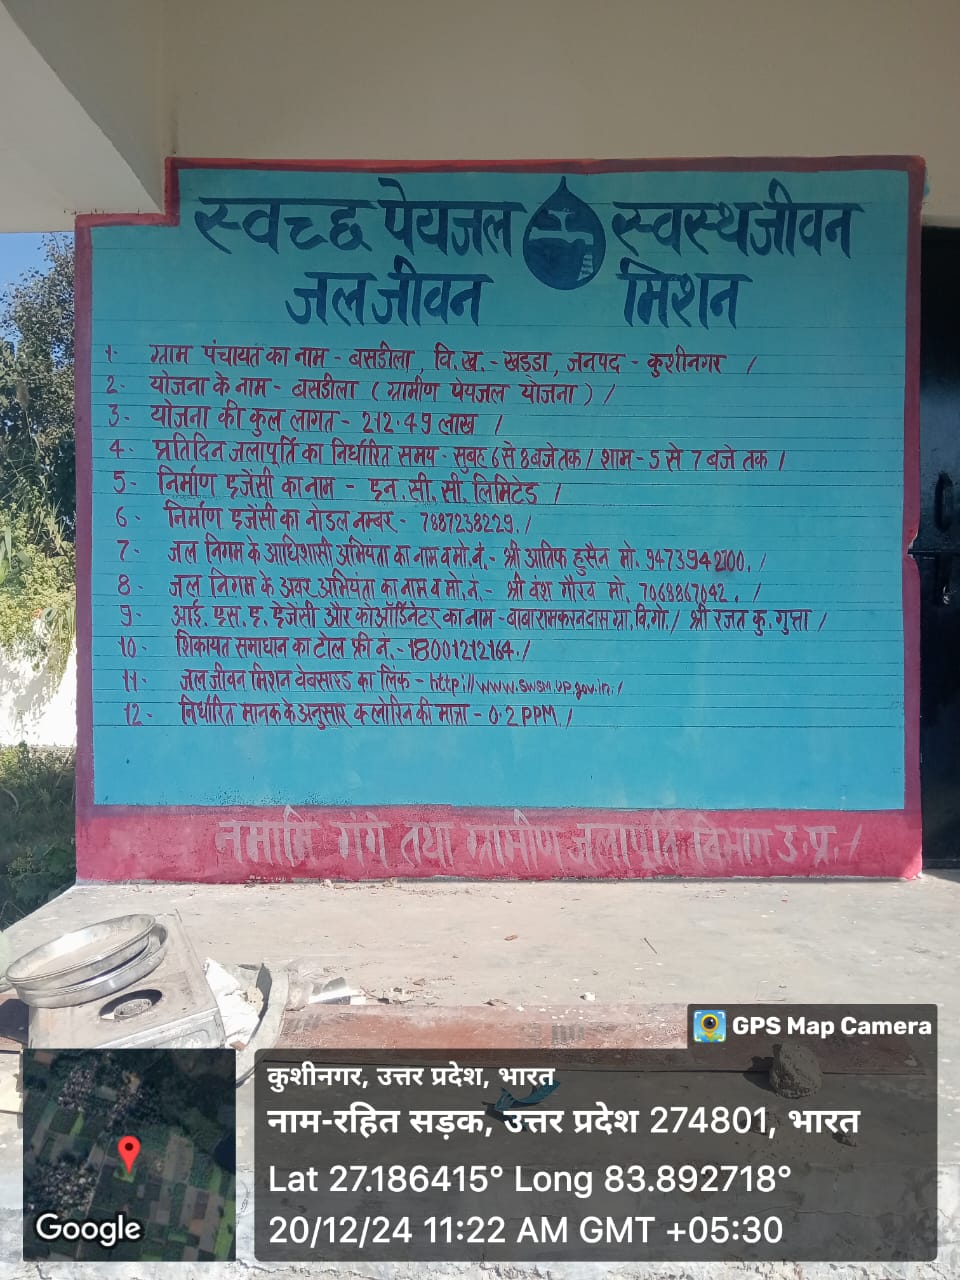 स्वच्छ पेयजल स्वस्थजीवन
जल जीवन मिशन
1- ग्राम पंचायत का नाम - बसडीला, वि.ख.- खड्डा, जनपद - कुशीनगर /
2- योजना के नाम - बसडीला ( ग्रामीण पेयजल योजना ) /
3- योजना की कुल लागत - 212.49 लाख /
4- प्रतिदिन जलापूर्ति का निर्धारित समय - सुबह 6 से 8 बजे तक / शाम - 5 से 7 बजे तक /
5- निर्माण एजेंसी का नाम - एन. सी. सी. लिमिटेड /
6- निर्माण एजेंसी का नोडल नम्बर - 7887238229. /
7- जल निगम के अधिशासी अभियंता का नाम व मो. नं.- श्री आतिफ हुसैन मो. 9473942700. /
8- जल निगम के अवर अभियंता का नाम व मो. नं.- श्री वंश गौरव मो. 7068867042. /
9- आई. एस. ए. एजेंसी और कोऑर्डिनेटर का नाम - बाबा रामकरन दास ग्रा. वि. गो. / श्री रजत कु. गुप्ता /
10- शिकायत समाधान का टोल फ्री नं.- 18001212164. /
11- जल जीवन मिशन वेबसाइड का लिंक - http://www.swsm.up.gov.in. /
12- निर्धारित मानक के अनुसार क्लोरिन की मात्रा - 0.2 PPM /
नमामि गंगे तथा ग्रामीण जलापूर्ति विभाग उ.प्र. /
GPS Map Camera
कुशीनगर, उत्तर प्रदेश, भारत
नाम-रहित सड़क, उत्तर प्रदेश 274801, भारत
Lat 27.186415° Long 83.892718°
20/12/24 11:22 AM GMT +05:30
Google